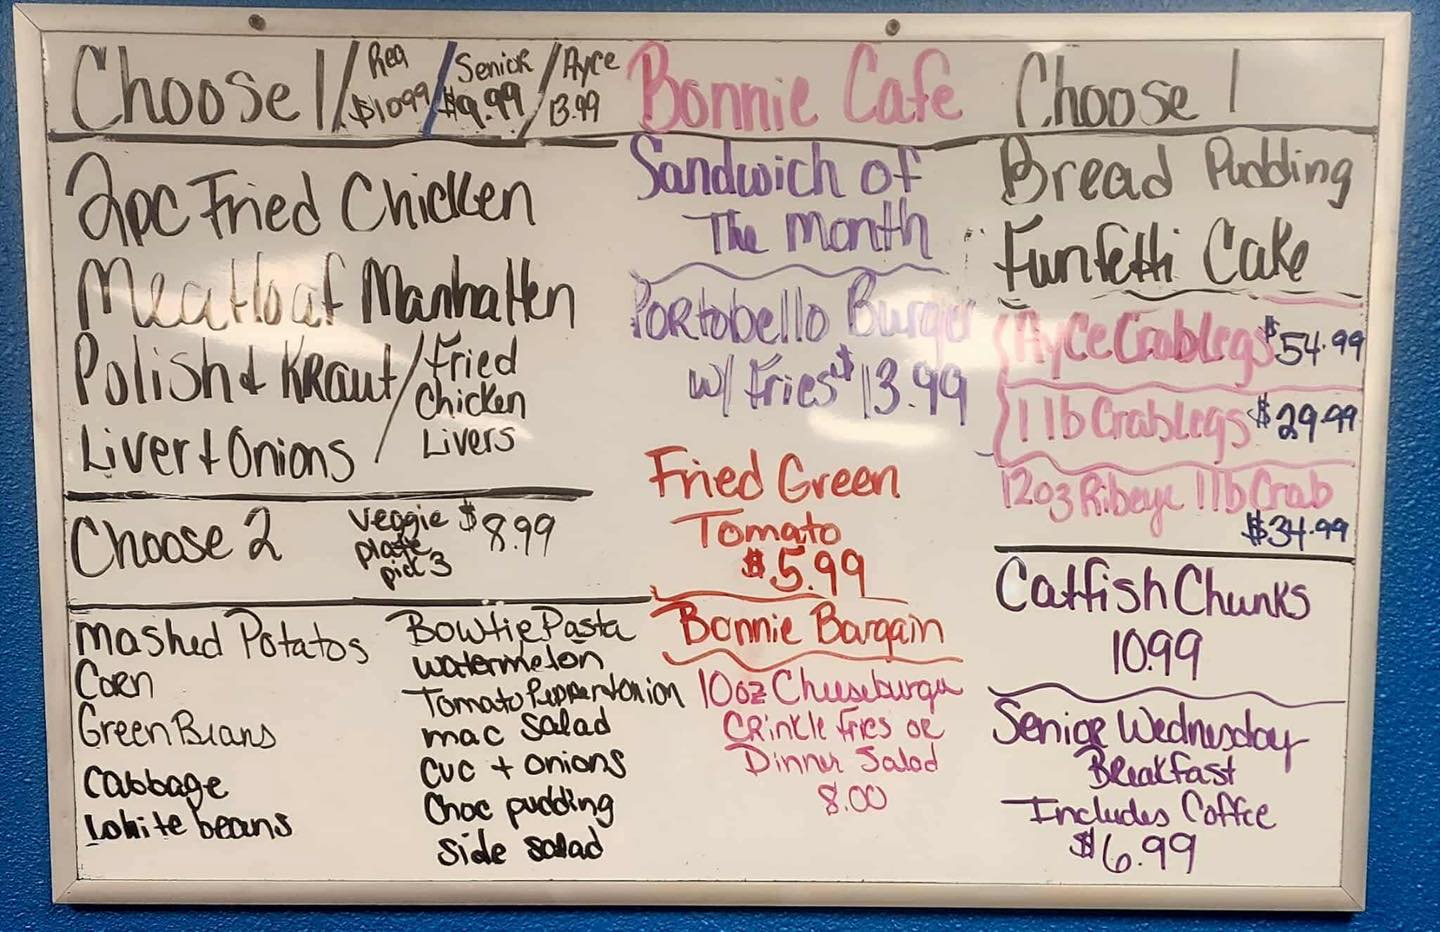 Choose 1 / Reg $10.99 / Senior $9.99 / Ayce 13.99
2pc Fried Chicken
Meatloaf Manhatten
Polish & Kraut / Fried Chicken Livers
Liver & Onions
Choose 2
Veggie plate pick 3 $8.99
Mashed Potatos
Corn
Green Beans
Cabbage
White beans
Bowtie Pasta
Watermelon
Tomato Pepper & Onion
Mac Salad
Cuc + onions
Choc pudding
Side Salad
Bonnie Cafe
Sandwich of
The Month
Portobello Burger
w/ Fries $13.99
Fried Green
Tomato
$5.99
Bonnie Bargain
10oz Cheeseburger
Crinkle Fries or
Dinner Salad
8.00
Choose 1
Bread Pudding
Funfetti Cake
Ayce Crablegs $54.99
1 lb Crablegs $29.99
12oz Ribeye 1 lb Crab
$34.99
Catfish Chunks
10.99
Senior Wednesday
Breakfast
Includes Coffee
$6.99